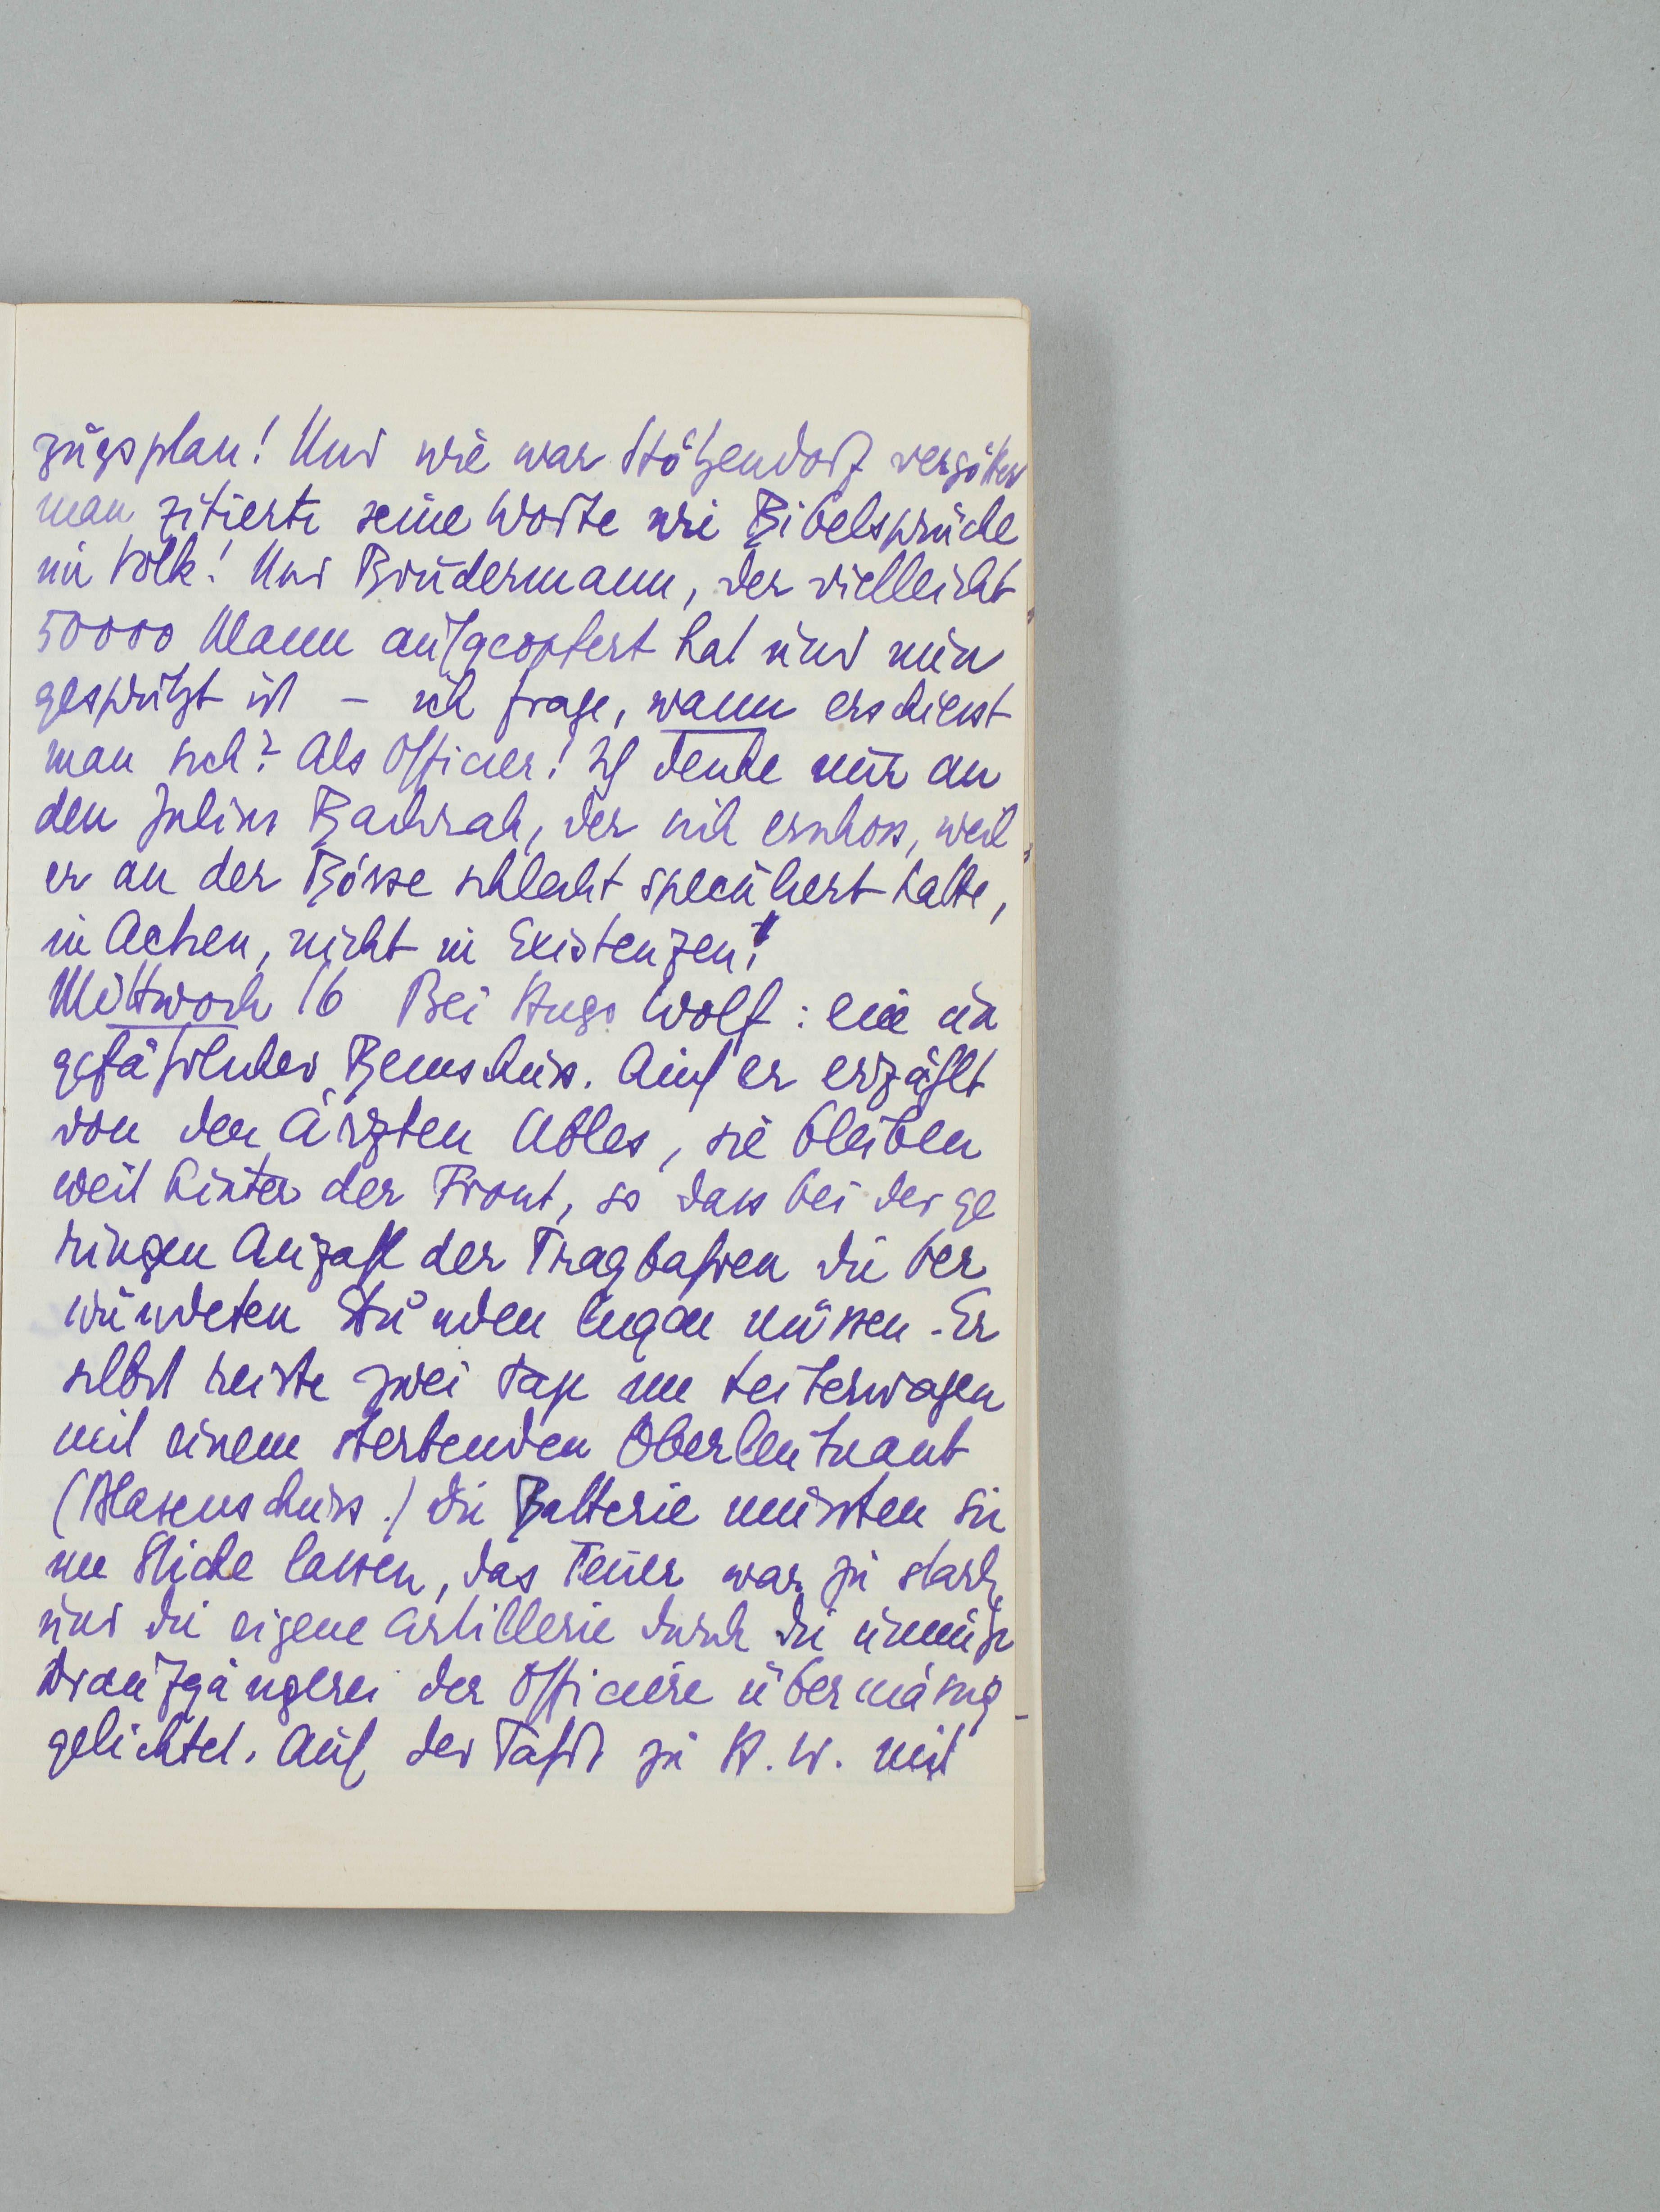 zugsplan! Und wie war Hötzendorf vergöttert
man zitierte seine Worte wie Bibelsprüche
im Volk! Und Brudermann, der vielleicht
50000 Mann aufgeopfert hat und nun
gespritzt ist – ich frage, wann erschiesst
man sich? Als Officier! Ich denke nur an
den Julius Bachrach, der sich erschoss, weil
er an der Börse schlecht speculiert hatte,
in Actien, nicht in Existenzen!
Mittwoch 16 Bei Hugo Wolf: ein un
gefährlicher Beinschuss. Auch er erzählt
von den Ärzten Übles, sie bleiben
weit hinter der Front, so dass bei der ge
ringen Anzahl der Tragbahren die Ver
wundeten Stunden liegen müssen. Er
selbst reiste zwei Tage im Leiterwagen
mit einem sterbenden Oberleutnant
(Blasenschuss.) Die Batterie mussten sie
im Stiche lassen, das Feuer war zu stark
und die eigene Artillerie durch die unnütze
Draufgängerei der Officiere übermässig
gelichtet. Auf der Fahrt zu H. W. mit